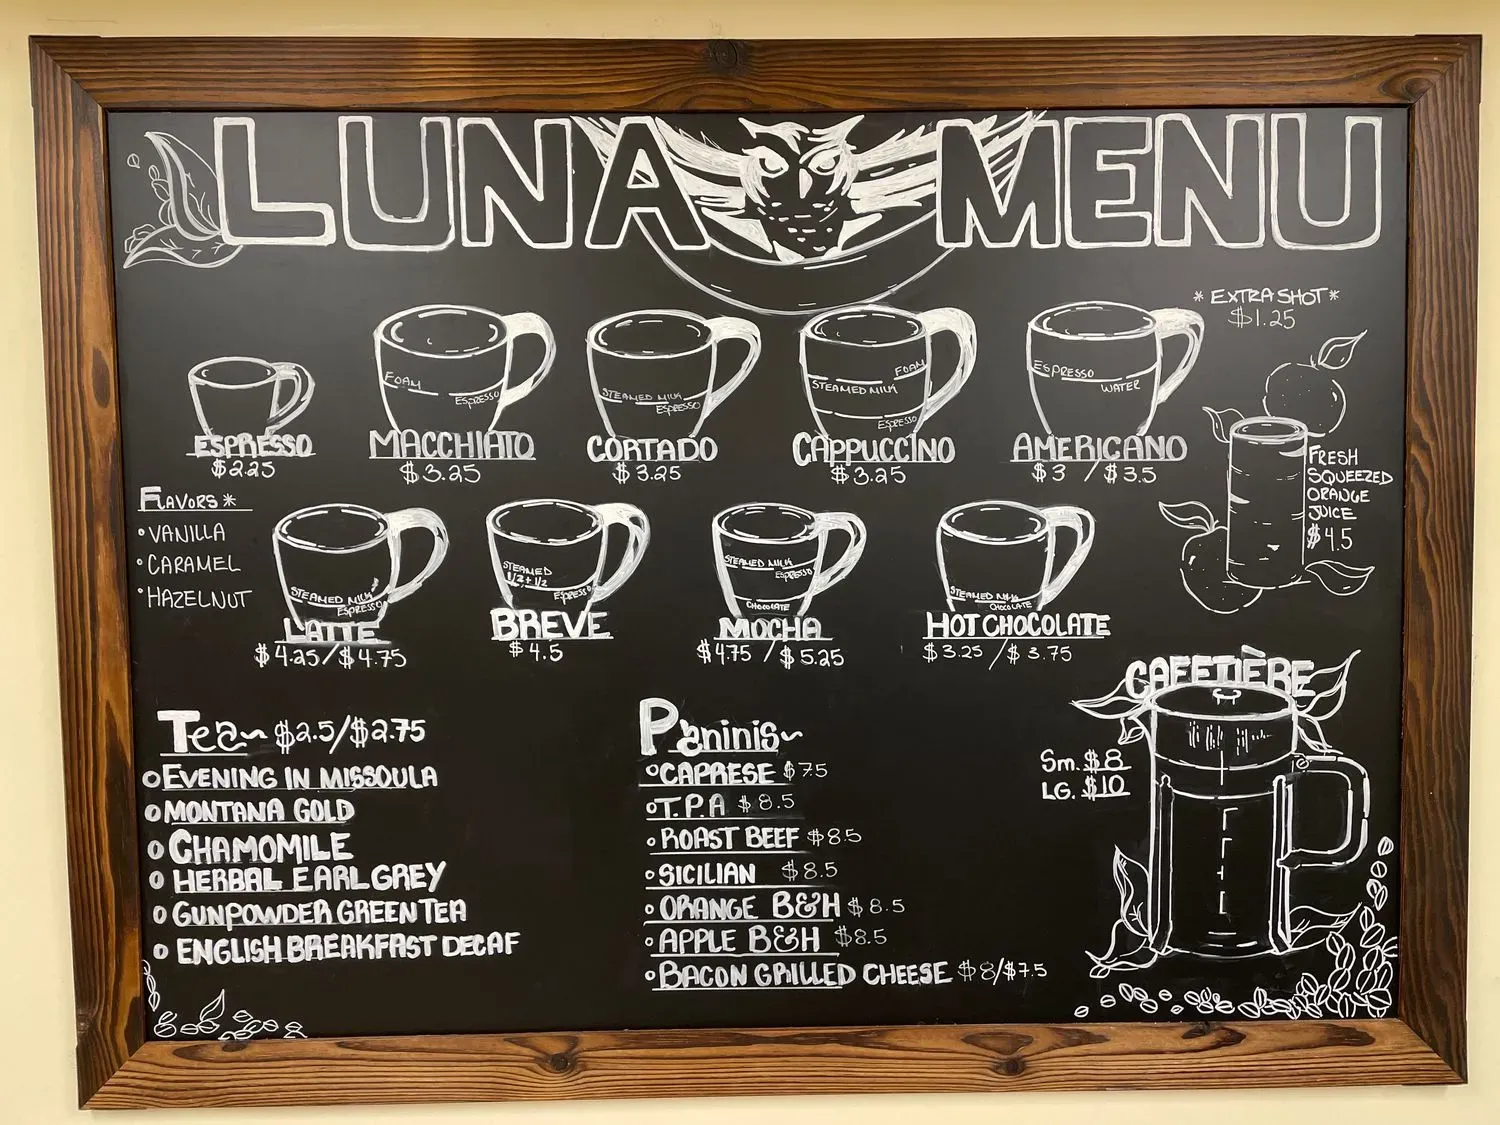 LUNA MENU
* EXTRA SHOT *
$1.25
FOAM
ESPRESSO
STEAMED MILK
ESPRESSO
FOAM
STEAMED MILK
ESPRESSO
ESPRESSO
WATER
ESPRESSO
$2.25
MACCHIATO
$3.25
CORTADO
$3.25
CAPPUCCINO
$3.25
AMERICANO
$3 / $3.5
FRESH
SQUEEZED
ORANGE
JUICE
$4.5
FLAVORS *
• VANILLA
• CARAMEL
• HAZELNUT
STEAMED MILK
ESPRESSO
LATTE
$4.25/$4.75
STEAMED
1/2 + 1/2
ESPRESSO
BREVE
$4.5
STEAMED MILK
ESPRESSO
CHOCOLATE
MOCHA
$4.75 / $5.25
STEAMED MILK
CHOCOLATE
HOT CHOCOLATE
$3.25 / $3.75
Tea~ $2.5/$2.75
○ EVENING IN MISSOULA
○ MONTANA GOLD
○ CHAMOMILE
○ HERBAL EARL GREY
○ GUNPOWDER GREEN TEA
○ ENGLISH BREAKFAST DECAF
Paninis~
○ CAPRESE $7.5
○ T.P.A $8.5
○ ROAST BEEF $8.5
○ SICILIAN $8.5
○ ORANGE B&H $8.5
○ APPLE B&H $8.5
○ BACON GRILLED CHEESE $8/$7.5
CAFETIÈRE
Sm. $8
LG. $10